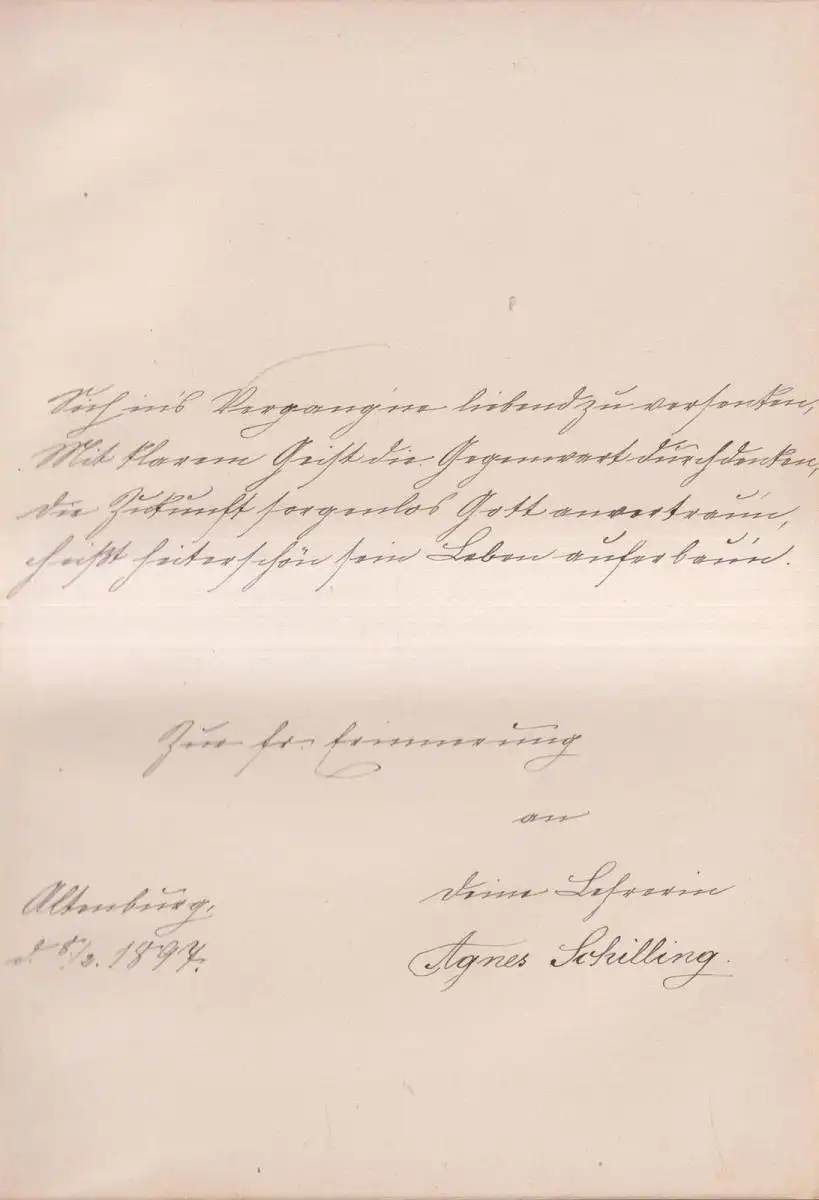 Sich in's Vergang'ne liebend zu versenken,
Mit klarem Geist die Gegenwart durchdenken,
Die Zukunft sorgenlos Gott anvertraun,
Heißt heiterschön sein Leben auferbaun.
Zur fr. Erinnerung
an
Deine Lehrerin
Altenburg,
Agnes Schilling.
d. 8/2. 1897.